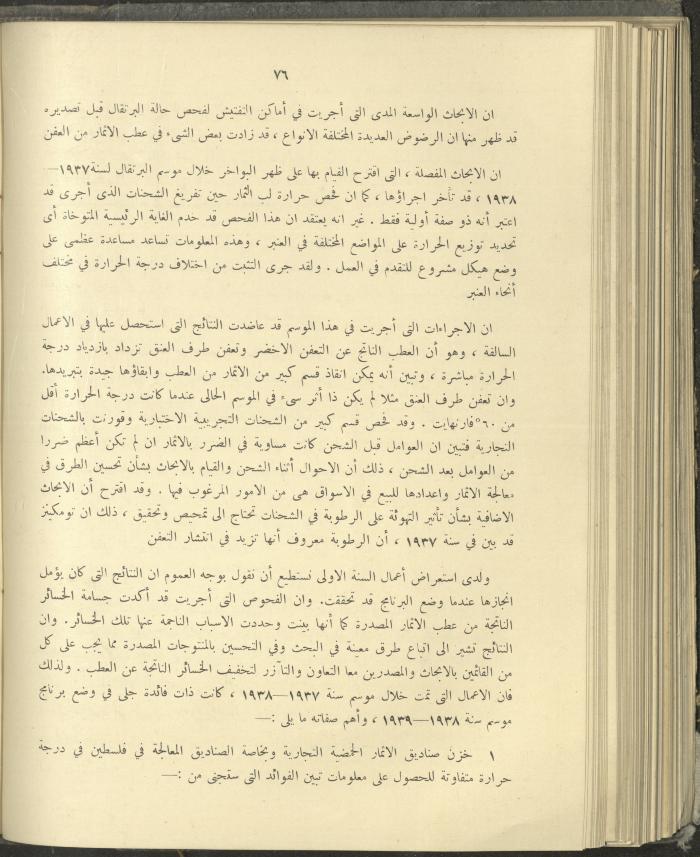 ٧٦
ان الابحاث الواسعة المدى التى أجريت في أماكن التفتيش لفحص حالة البرتقال قبل تصديره
قد ظهر منها ان الرضوض العديدة المختلفة الانواع ، قد زادت بعض الشىء في عطب الاثمار من العفن
ان الابحاث المفصلة ، التى اقترح القيام بها على ظهر البواخر خلال موسم البرتقال لسنة ١٩٣٧—
١٩٣٨ ، قد تأخر اجراؤها ، كما ان فحص حرارة لب الثمار حين تفريغ الشحنات الذى أجرى قد
اعتبر أنه ذو صفة أولية فقط . غير انه يعتقد ان هذا الفحص قد خدم الغاية الرئيسية المتوخاة أى
تحديد توزيع الحرارة على المواضع المختلفة في العنبر ، وهذه المعلومات تساعد مساعدة عظمى على
وضع هيكل مشروع للتقدم في العمل . ولقد جرى التثبت من اختلاف درجة الحرارة في مختلف
أنحاء العنبر
ان الاجراءات التى أجريت في هذا الموسم قد عاضدت النتائج التى استحصل عليها في الاعمال
السالفة ، وهو أن العطب الناتج عن التعفن الاخضر وتعفن طرف العنق تزداد بازدياد درجة
الحرارة مباشرة ، وتبين أنه يمكن انقاذ قسم كبير من الاثمار من العطب وابقاؤها جيدة بتبريدها.
وان تعفن طرف العنق مثلا لم يكن ذا أثر سىء في الموسم الحالى عندما كانت درجة الحرارة أقل
من ٦٠° فارنهايت . وقد فحص قسم كبير من الشحنات التجريبية الاختبارية وقورنت بالشحنات
التجارية فتبين ان العوامل قبل الشحن كانت مساوية في الضرر بالاثمار ان لم تكن أعظم ضررا
من العوامل بعد الشحن ، ذلك أن الاحوال أثناء الشحن والقيام بالابحاث بشأن تحسين الطرق في
معالجة الاثمار واعدادها للبيع في الاسواق هى من الامور المرغوب فيها . وقد اقترح أن الابحاث
الاضافية بشأن تأثير التهوئة على الرطوبة في الشحنات تحتاج الى تمحيص وتحقيق ، ذلك ان تومكينز
قد بين في سنة ١٩٣٧ ، أن الرطوبة معروف أنها تزيد في انتشار التعفن
ولدى استعراض أعمال السنة الاولى نستطيع أن نقول بوجه العموم ان النتائج التى كان يؤمل
انجازها عندما وضع البرنامج قد تحققت. وان الفحوص التى أجريت قد أكدت جسامة الخسائر
الناتجة من عطب الاثمار المصدرة كما أنها بينت وحددت الاسباب الناجمة عنها تلك الخسائر . وان
النتائج تشير الى اتباع طرق معينة في البحث وفي التحسين بالمنتوجات المصدرة مما يجب على كل
من القائمين بالابحاث والمصدرين معا التعاون والتآزر لتخفيف الخسائر الناتجة عن العطب . ولذلك
فان الاعمال التى تمت خلال موسم سنة ١٩٣٧—١٩٣٨ ، كانت ذات فائدة جلى في وضع برنامج
موسم سنة ١٩٣٨—١٩٣٩ ، وأهم صفاته ما يلى :—
١ خزن صناديق الاثمار الحمضية التجارية وبخاصة الصناديق المعالجة في فلسطين في درجة
حرارة متفاوتة للحصول على معلومات تبين الفوائد التى ستجنى من :—